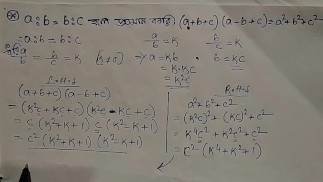 a:b = b:c হলে প্রমাণ করো (a+b+c)(a-b+c)=a²+b²+c²
a:b = b:c
a/b = b/c = K [k≠0]
a/b = K
b/c = K
→ a = Kb • b = KC
= K·KC
= K²C
L·H·S
(a+b+c)(a-b+c)
= (K²c+Kc+c)(K²c-Kc+c)
= c(K²+K+1) c(K²-K+1)
= c²(K²+K+1)(K²-K+1)
R·H·S
a²+b²+c²
= (K²c)²+(Kc)²+c²
= K⁴c²+K²c²+c²
= c²(K⁴+K²+1)